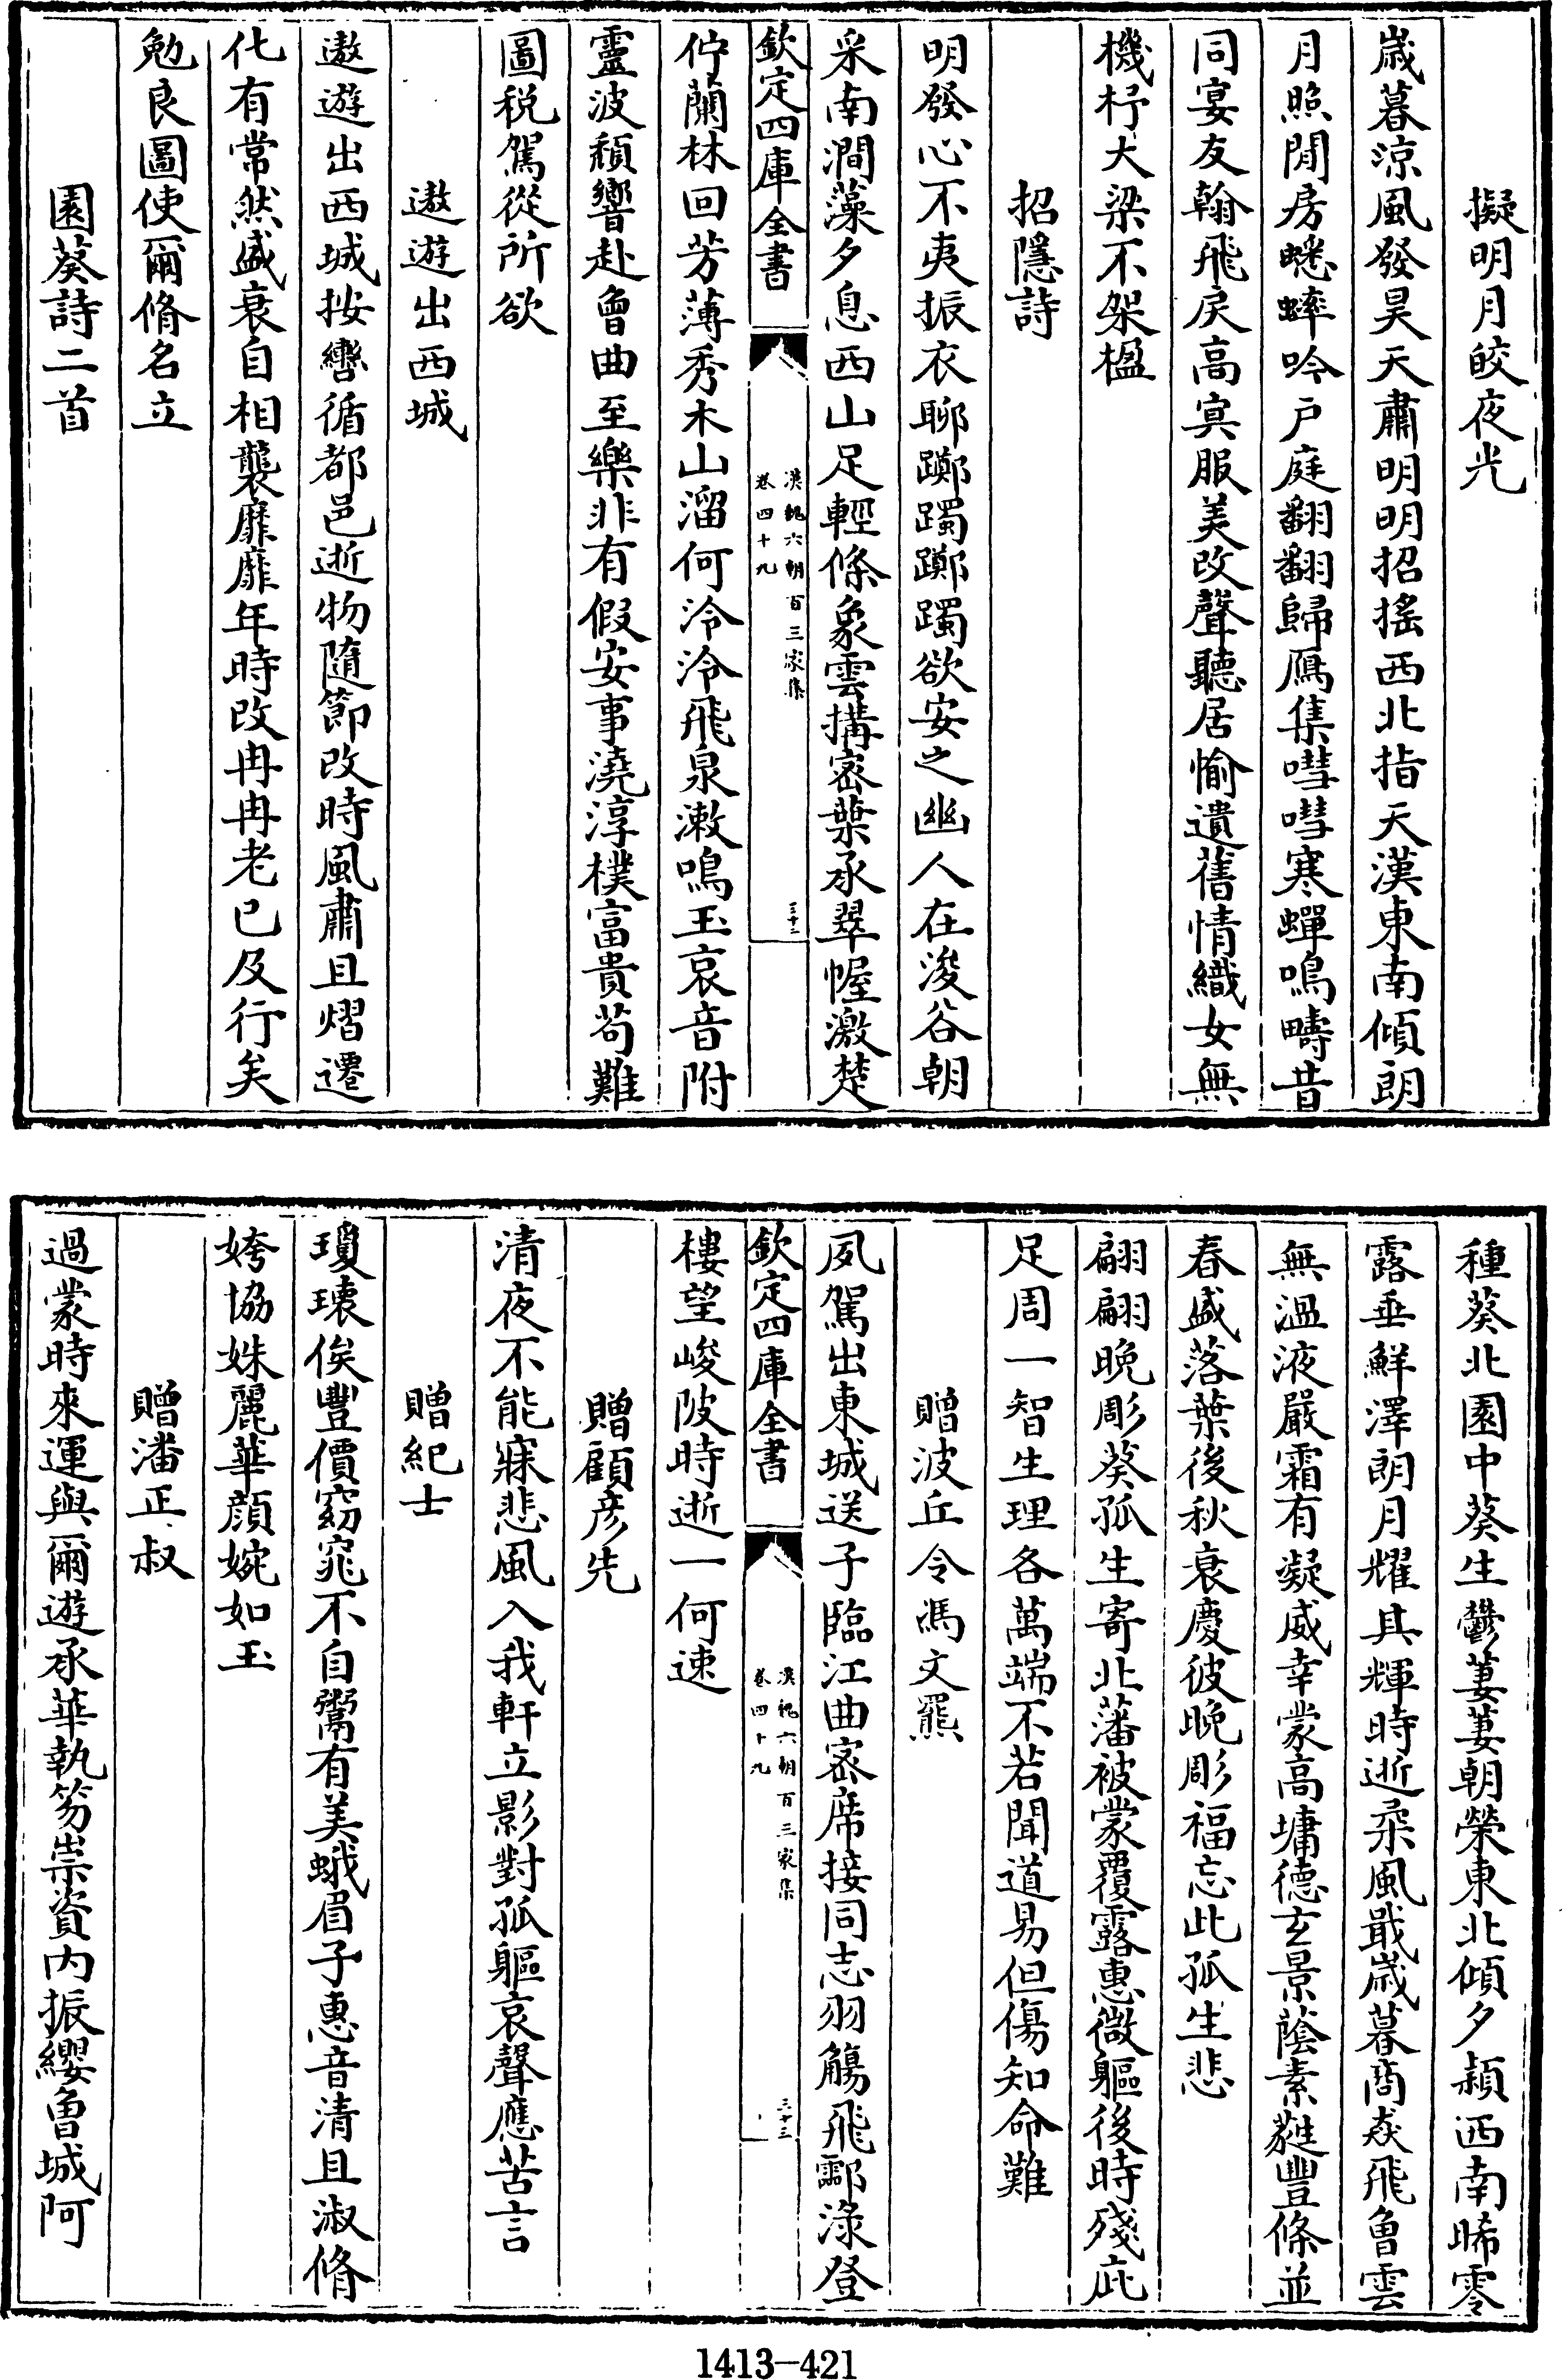 擬明月皎夜光
歳暮涼風發昊天肅明明招搖西北指天漢東南傾朗
月照閒房蟋蟀吟戸庭翻翻歸鴈集嘒嘒寒蟬鳴疇昔
同宴友翰飛戾高冥服美改聲聽居愉遺舊情織女無
機杼大梁不架楹
招隱詩
明發心不夷振衣聊躑躅躑躅欲安之幽人在浚谷朝
采南澗藻夕息西山足輕條象雲搆宻葉承翠幄激楚
欽定四庫全書
漢魏六朝百三家集
卷四十九
三十二
佇蘭林回芳薄秀木山溜何泠泠飛泉漱鳴玉哀音附
靈波頽響赴曾曲至樂非有假安事澆淳樸富貴茍難
圖税駕從所欲
遨遊出西城
遨遊出西城按轡循都邑逝物隨節改時風肅且熠遷
化有常然盛衰自相襲靡靡年時改冉冉老已及行矣
勉良圖使爾脩名立
園葵詩二首
種葵北園中葵生鬱萋萋朝榮東北傾夕穎西南晞零
露垂鮮澤朗月耀其輝時逝柔風戢歳暮商猋飛曾雲
無温液嚴霜有凝威幸蒙髙墉德玄景蔭素蕤豐條並
春盛落葉後秋衰慶彼晚彫福忘此孤生悲
翩翩晚彫葵孤生寄北藩被蒙覆露惠微軀後時殘庇
足周一智生理各萬端不若聞道易但傷知命難
贈波丘令馮文羆
夙駕出東城送子臨江曲宻席接同志羽觴飛酃淥登
欽定四庫全書
漢魏六朝百三家集
卷四十九
三十三
樓望峻陂時逝一何速
贈顧彦先
清夜不能寐悲風入我軒立影對孤軀哀聲應苦言
贈紀士
瓊瓌俟豐價窈窕不自鬻有美蛾眉子惠音清且淑脩
姱協姝麗華顔婉如玉
贈潘正叔
過蒙時來運與爾遊承華執笏崇資内振纓曾城阿
1413-421